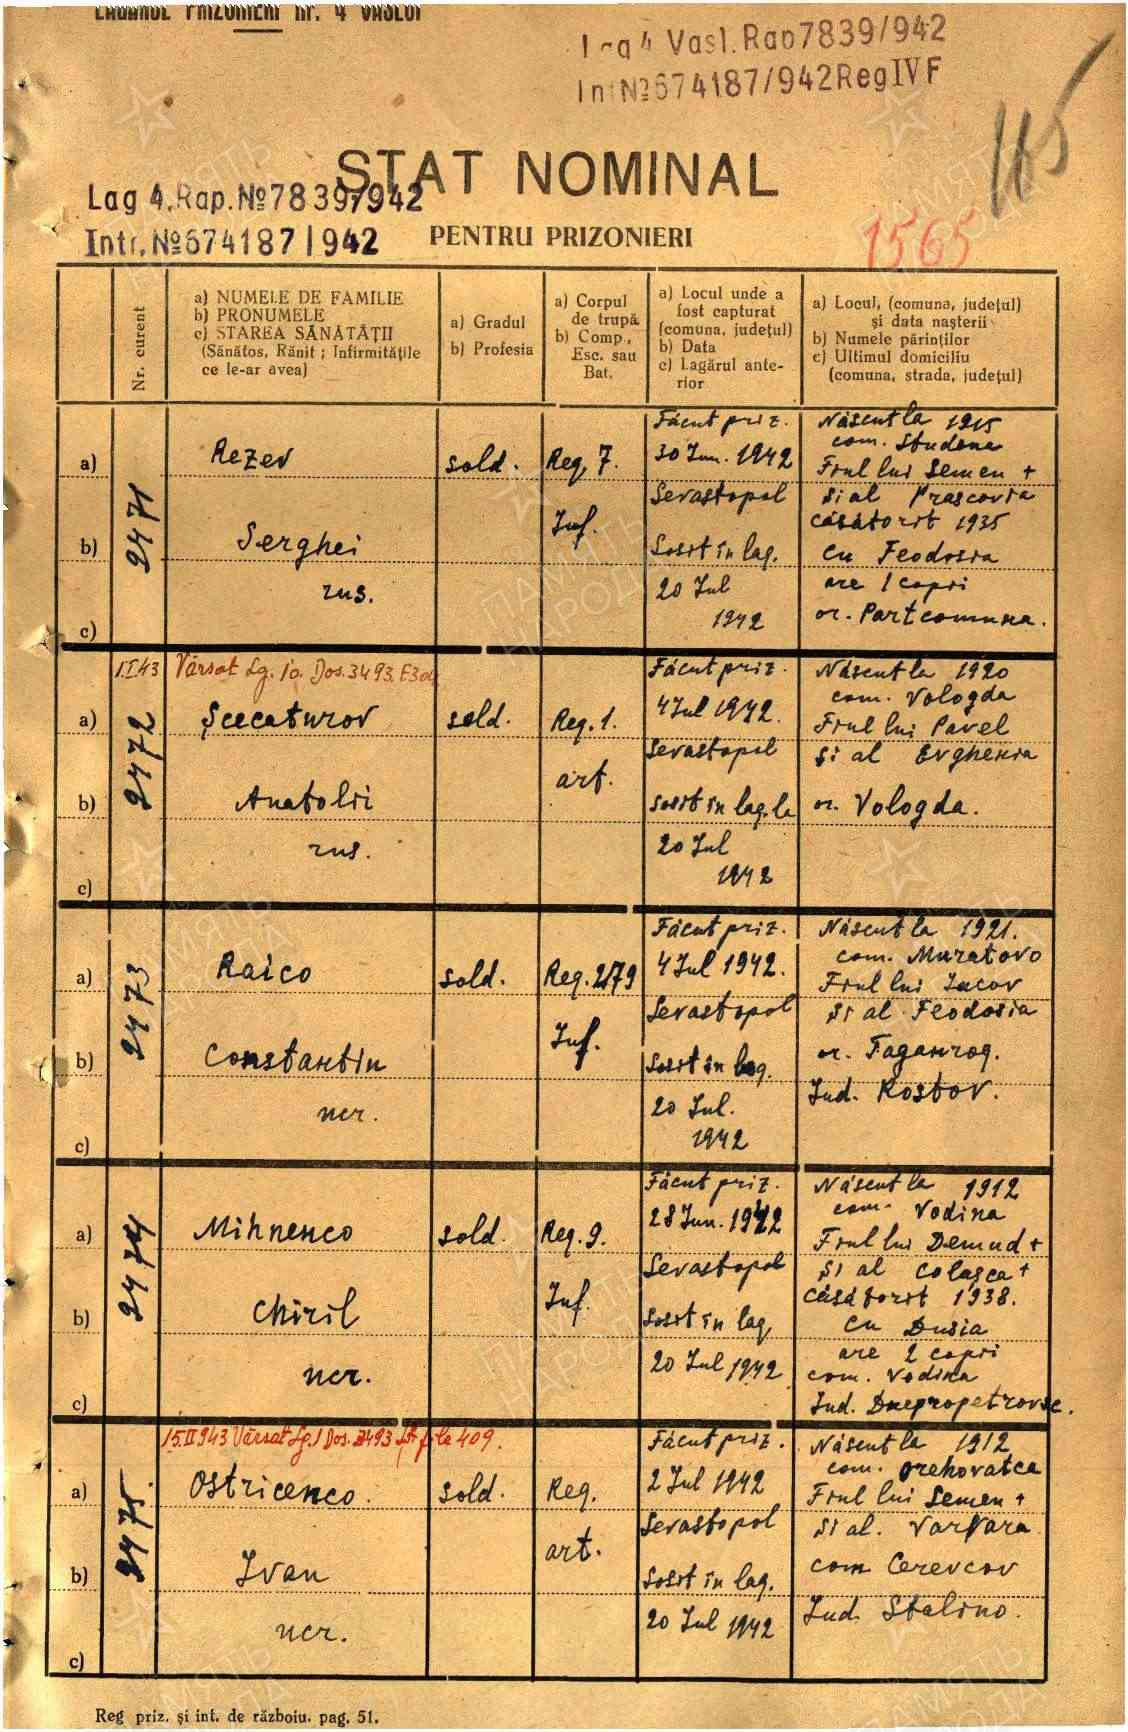 LAGARUL PRIZONIERI Nr. 4 VASLUI
Lag 4 Vasl. Rap 7839/942
Int № 674187/942 Reg IV F
115
STAT NOMINAL
Lag 4. Rap. № 7839/942
Intr. № 674187/942
PENTRU PRIZONIERI
1565
Nr. curent
a) NUMELE DE FAMILIE
b) PRONUMELE
c) STAREA SĂNĂTĂȚII
(Sănătos, Rănit ; Infirmitățile
ce le-ar avea)
a) Gradul
b) Profesia
a) Corpul
de trupă
b) Comp.,
Esc. sau
Bat.
a) Locul unde a
fost capturat
(comuna, județul)
b) Data
c) Lagărul ante-
rior
a) Locul, (comuna, județul)
și data nașterii
b) Numele părinților
c) Ultimul domiciliu
(comuna, strada, județul)
a)
b)
c)
2471
Rezev
Serghei
rus.
sold.
Reg. 7.
Inf.
Făcut priz.
30 Iun. 1942
Sevastopol
Sosit în lag.
20 Iul
1942
Născut la 1915
com. Studena
Fiul lui Semen +
și al Prascovia
căsătorit 1935
cu Feodosia
are 1 copii
or. Partcomuna.
1.I.43 Vărsat Lg. 10. Dos. 3493.
a)
b)
c)
2472
Șcecaturov
Anatolii
rus.
sold.
Reg. 1.
art.
Făcut priz.
4 Iul 1942.
Sevastopol
sosit în lag. la
20 Iul
1942
Născut la 1920
com. Vologda
Fiul lui Pavel
și al Evghenia
or. Vologda.
a)
b)
c)
2473
Raico
Constantin
ucr.
sold.
Reg. 2179
Inf.
Făcut priz.
4 Iul 1942.
Sevastopol
Sosit în lag.
20 Iul.
1942
Născut la 1921.
com. Muratovo
Fiul lui Iacov
și al Feodosia
or. Taganrog.
Jud. Rostov.
a)
b)
c)
2474
Mihnenco
Chiril
ucr.
sold.
Reg. 9.
Inf.
Făcut priz.
28 Iun. 1942
Sevastopol
Sosit în lag.
20 Iul 1942
Născut la 1912
com. Vodina
Fiul lui Demud +
și al Colașca +
căsătorit 1938.
cu Dusia
are 2 copii
com. Vodina
Jud. Dnepropetrovsc.
15.II 943 Vărsat Lg. 1 Dos. 3493 fila 409.
a)
b)
c)
2475.
Ostricenco.
Ivan
ucr.
sold.
Reg.
art.
Făcut priz.
2 Iul 1942
Sevastopol
Sosit în lag.
20 Iul 1942
Născut la 1912
com. Orehovatca
Fiul lui Semen +
și al. Varvara
com Cerevcov
Jud. Stalino.
Reg priz. și int. de războiu. pag. 51.